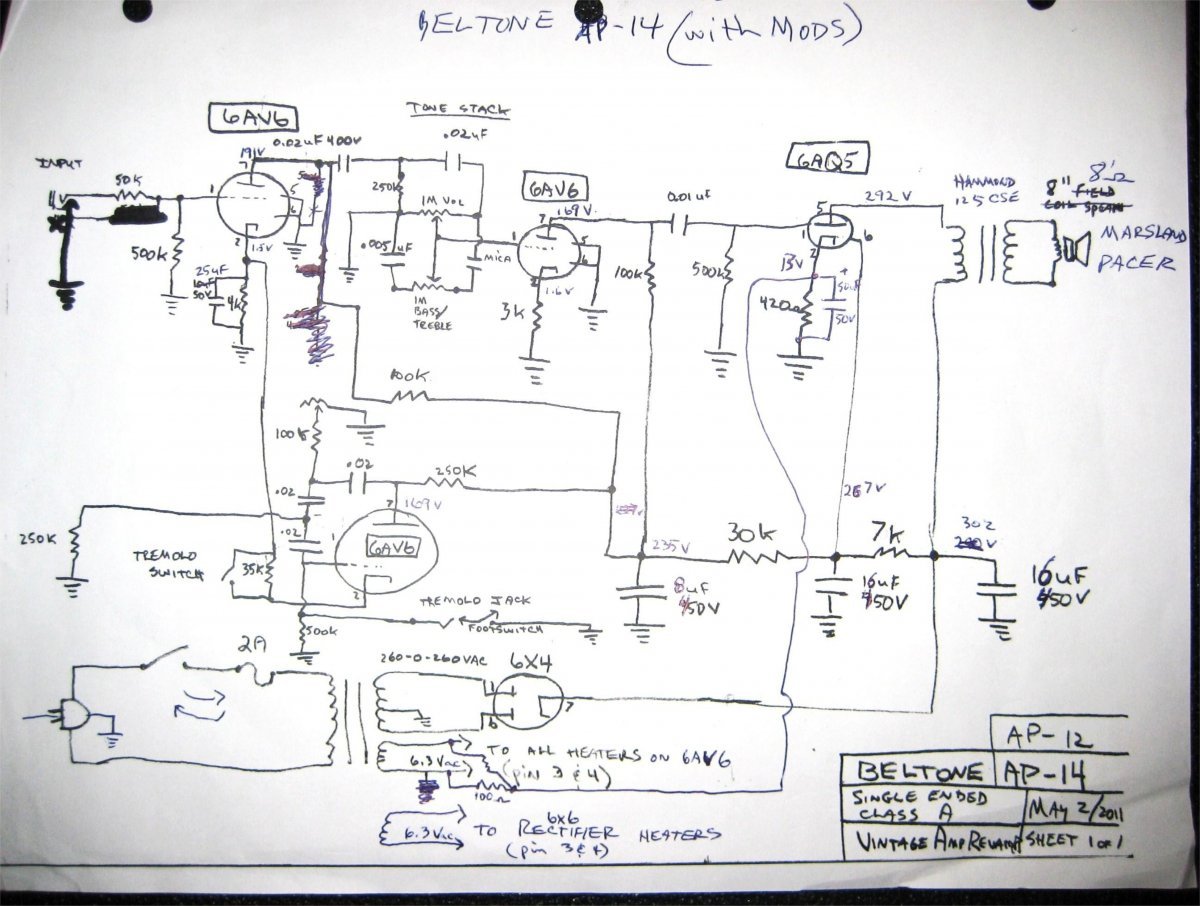 BELTONE AP-14 (with MODS)
6AV6
INPUT
50K
500K
191V
7
1
5
6
2
1.5V
25uF
50V
4K
0.02uF 400V
TONE STACK
.02uF
250K
1M VOL
.005uF
1M
BASS/
TREBLE
MICA
6AV6
169V
7
1
5
6
2
1.6V
3K
100K
0.01uF
500K
6AQ5
5
1
2
6
13V
420Ω
+
50V
292V
HAMMOND
125CSE
8Ω
8" FIELD
COIL SPEAKER
MARSLAND
PACER
100K
100K
.02
250K
.02
169V
7
.02
6AV6
1
2
250K
TREMOLO
SWITCH
35K
500K
TREMOLO JACK
FOOTSWITCH
235V
8uF
450V
30K
267V
16uF
450V
7K
302
16uF
450V
2A
260-0-260VAC
6X4
1
6
7
6.3Vac
TO ALL HEATERS ON 6AV6
(pin 3 & 4)
100Ω
6.3Vac
6x6
TO RECTIFIER HEATERS
(pin 3 & 4)
AP-12
BELTONE AP-14
SINGLE ENDED
CLASS A
MAY 2/2011
VINTAGE AMP REVAMP
SHEET 1 of 1